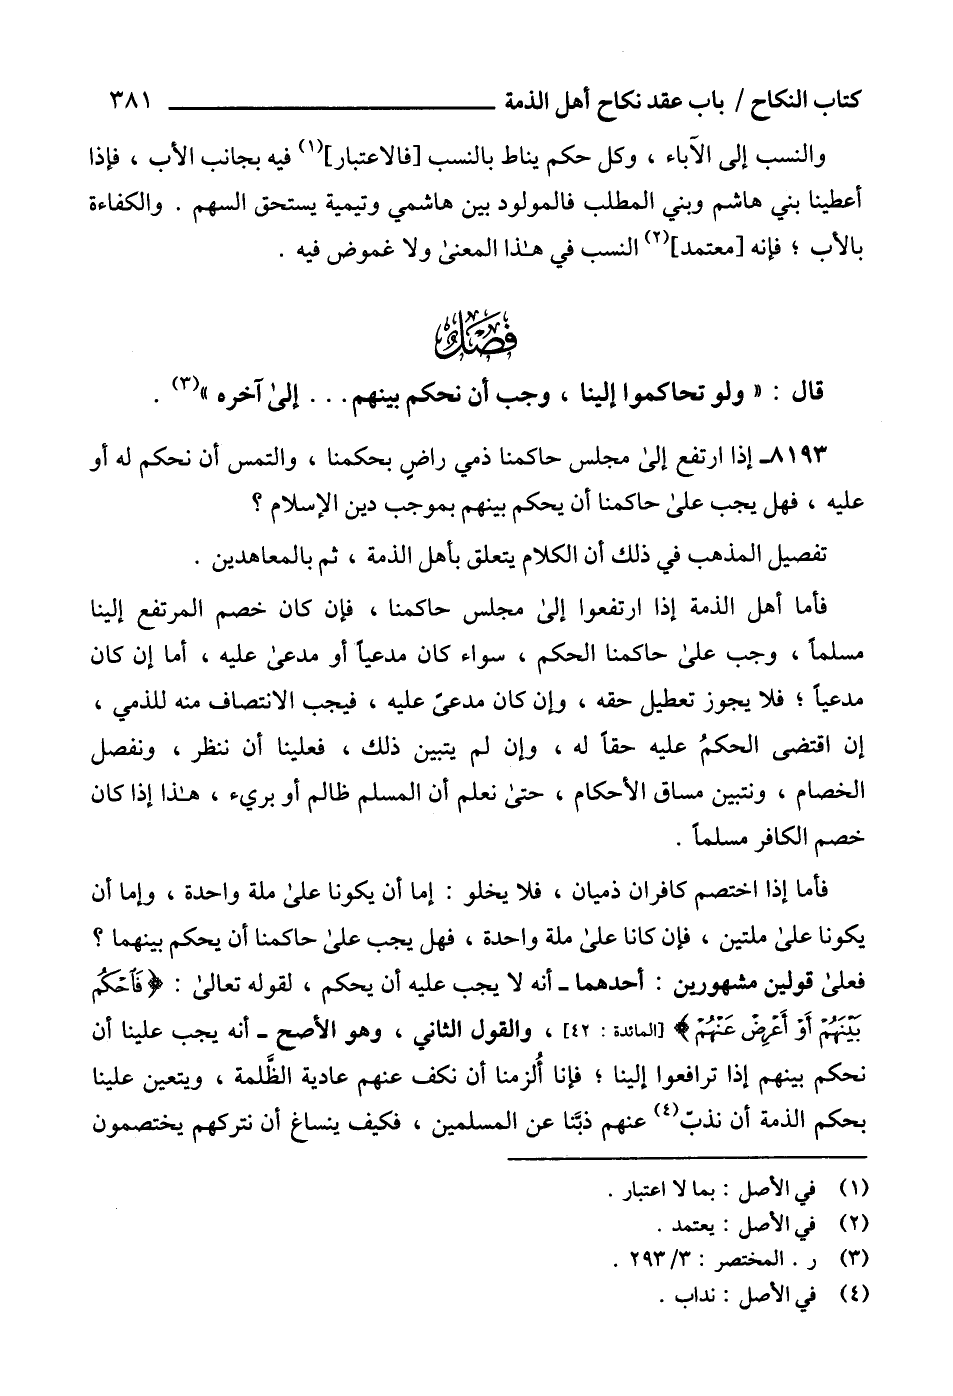 كتاب النكاح / باب عقد نكاح أهل الذمة ٣٨١
والنسب إلى الآباء ، وكل حكم يناط بالنسب [فالاعتبار](١) فيه بجانب الأب ، فإذا
أعطينا بني هاشم وبني المطلب فالمولود بين هاشمي وتيمية يستحق السهم . والكفاءة
بالأب ؛ فإنه [معتمد](٢) النسب في هـٰذا المعنىٰ ولا غموض فيه .
فصل
قال : « ولو تحاكموا إلينا ، وجب أن نحكم بينهم . . . إلىٰ آخره »(٣) .
٨١٩٣ـ إذا ارتفع إلىٰ مجلس حاكمنا ذمي راضٍ بحكمنا ، والتمس أن نحكم له أو
عليه ، فهل يجب علىٰ حاكمنا أن يحكم بينهم بموجب دين الإسلام ؟
تفصيل المذهب في ذلك أن الكلام يتعلق بأهل الذمة ، ثم بالمعاهدين .
فأما أهل الذمة إذا ارتفعوا إلىٰ مجلس حاكمنا ، فإن كان خصم المرتفع إلينا
مسلماً ، وجب علىٰ حاكمنا الحكم ، سواء كان مدعياً أو مدعىٰ عليه ، أما إن كان
مدعياً ؛ فلا يجوز تعطيل حقه ، وإن كان مدعىً عليه ، فيجب الانتصاف منه للذمي ،
إن اقتضى الحكمُ عليه حقاً له ، وإن لم يتبين ذلك ، فعلينا أن ننظر ، ونفصل
الخصام ، ونتبين مساق الأحكام ، حتىٰ نعلم أن المسلم ظالم أو بريء ، هـٰذا إذا كان
خصم الكافر مسلماً .
فأما إذا اختصم كافران ذميان ، فلا يخلو : إما أن يكونا علىٰ ملة واحدة ، وإما أن
يكونا علىٰ ملتين ، فإن كانا علىٰ ملة واحدة ، فهل يجب علىٰ حاكمنا أن يحكم بينهما ؟
فعلىٰ قولين مشهورين : أحدهما ـ أنه لا يجب عليه أن يحكم ، لقوله تعالىٰ : ﴿ فَٱحْكُم
بَيْنَهُمْ أَوْ أَعْرِضْ عَنْهُمْ ﴾ [المائدة : ٤٢] ، والقول الثاني ، وهو الأصح ـ أنه يجب علينا أن
نحكم بينهم إذا ترافعوا إلينا ؛ فإنا أُلزمنا أن نكف عنهم عادية الظَّلمة ، ويتعين علينا
بحكم الذمة أن نذبّ(٤) عنهم ذبَّنا عن المسلمين ، فكيف ينساغ أن نتركهم يختصمون
(١) في الأصل : بما لا اعتبار .
(٢) في الأصل : يعتمد .
(٣) ر . المختصر : ٣/ ٢٩٣ .
(٤) في الأصل : نداب .